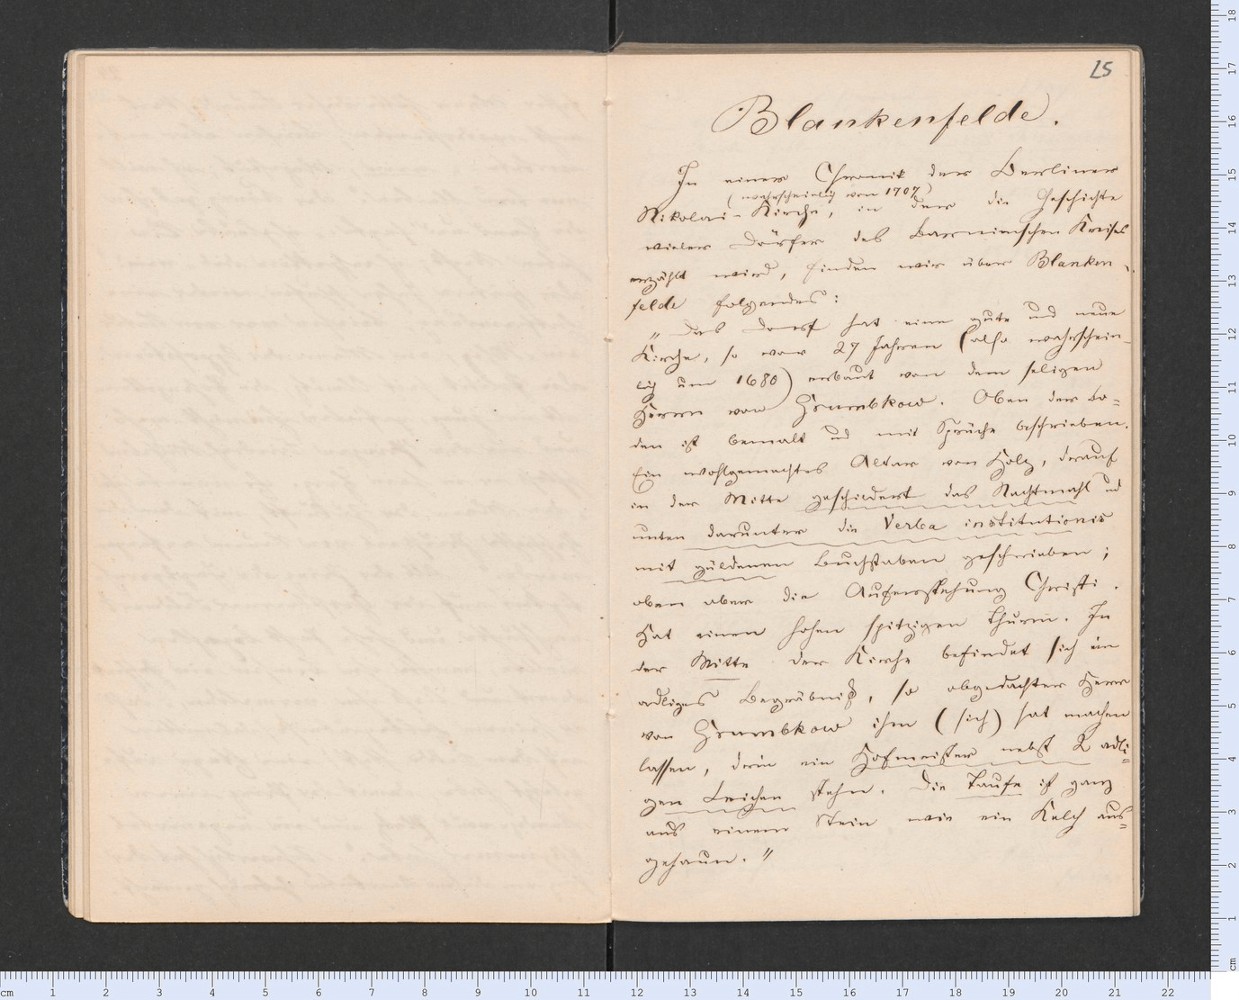 25
Blankenfelde.
In einer Chronik der Berliner
(wahrscheinlich von 1707)
Nikolai-Kirche, in der die Geschichte
vieler Dörfer des Barnimschen Kreises
erzählt wird, finden wir über Blanken-
felde folgendes:
"Das Dorf hat eine gute und neue
Kirche, so vor 27 Jahren (also wahrschein-
lich um 1680) erbaut von dem seligen
Herrn von Grumbkow. Oben der Bo=
den ist bemalt und mit Sprüche beschrieben.
Ein wohlgemachtes Altar von Holz, darauf
in der Mitte geschildert das Nachtmahl und
unten darunter die Verba institutionis
mit güldenen Buchstaben geschrieben;
oben aber die Auferstehung Christi.
Hat einen hohen spitzigen Thurm. In
der Mitte der Kirche befindet sich ein
adliges Begräbniß, so obgedachter Herr
von Grumbkow ihm (sich) hat machen
lassen, darin ein Hofmeister nebst 2 adli=
gen Leichen stehn. Die Taufe ist ganz
aus einem Stein wie ein Kelch aus=
gehaun."